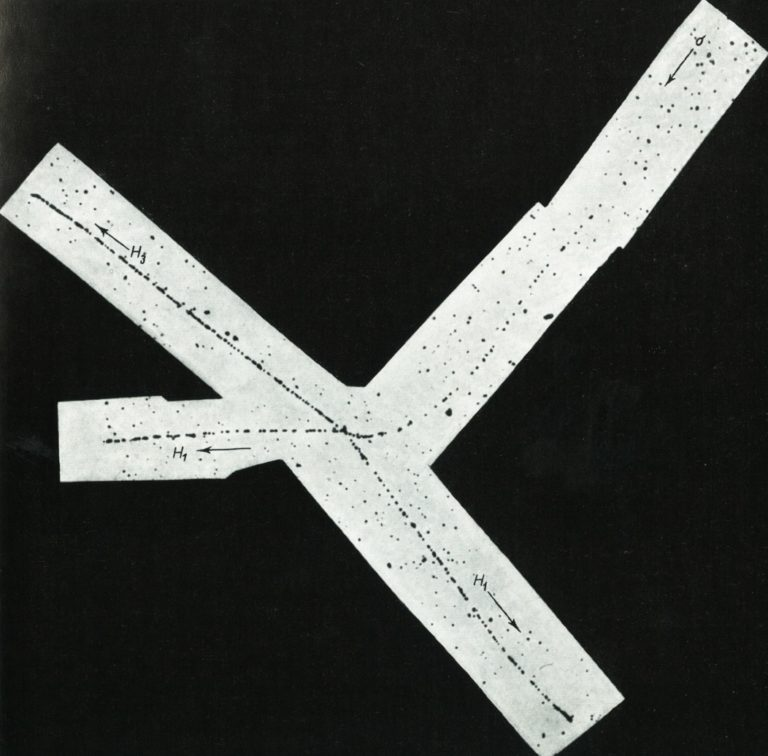 σ
H₃
H₁
H₁